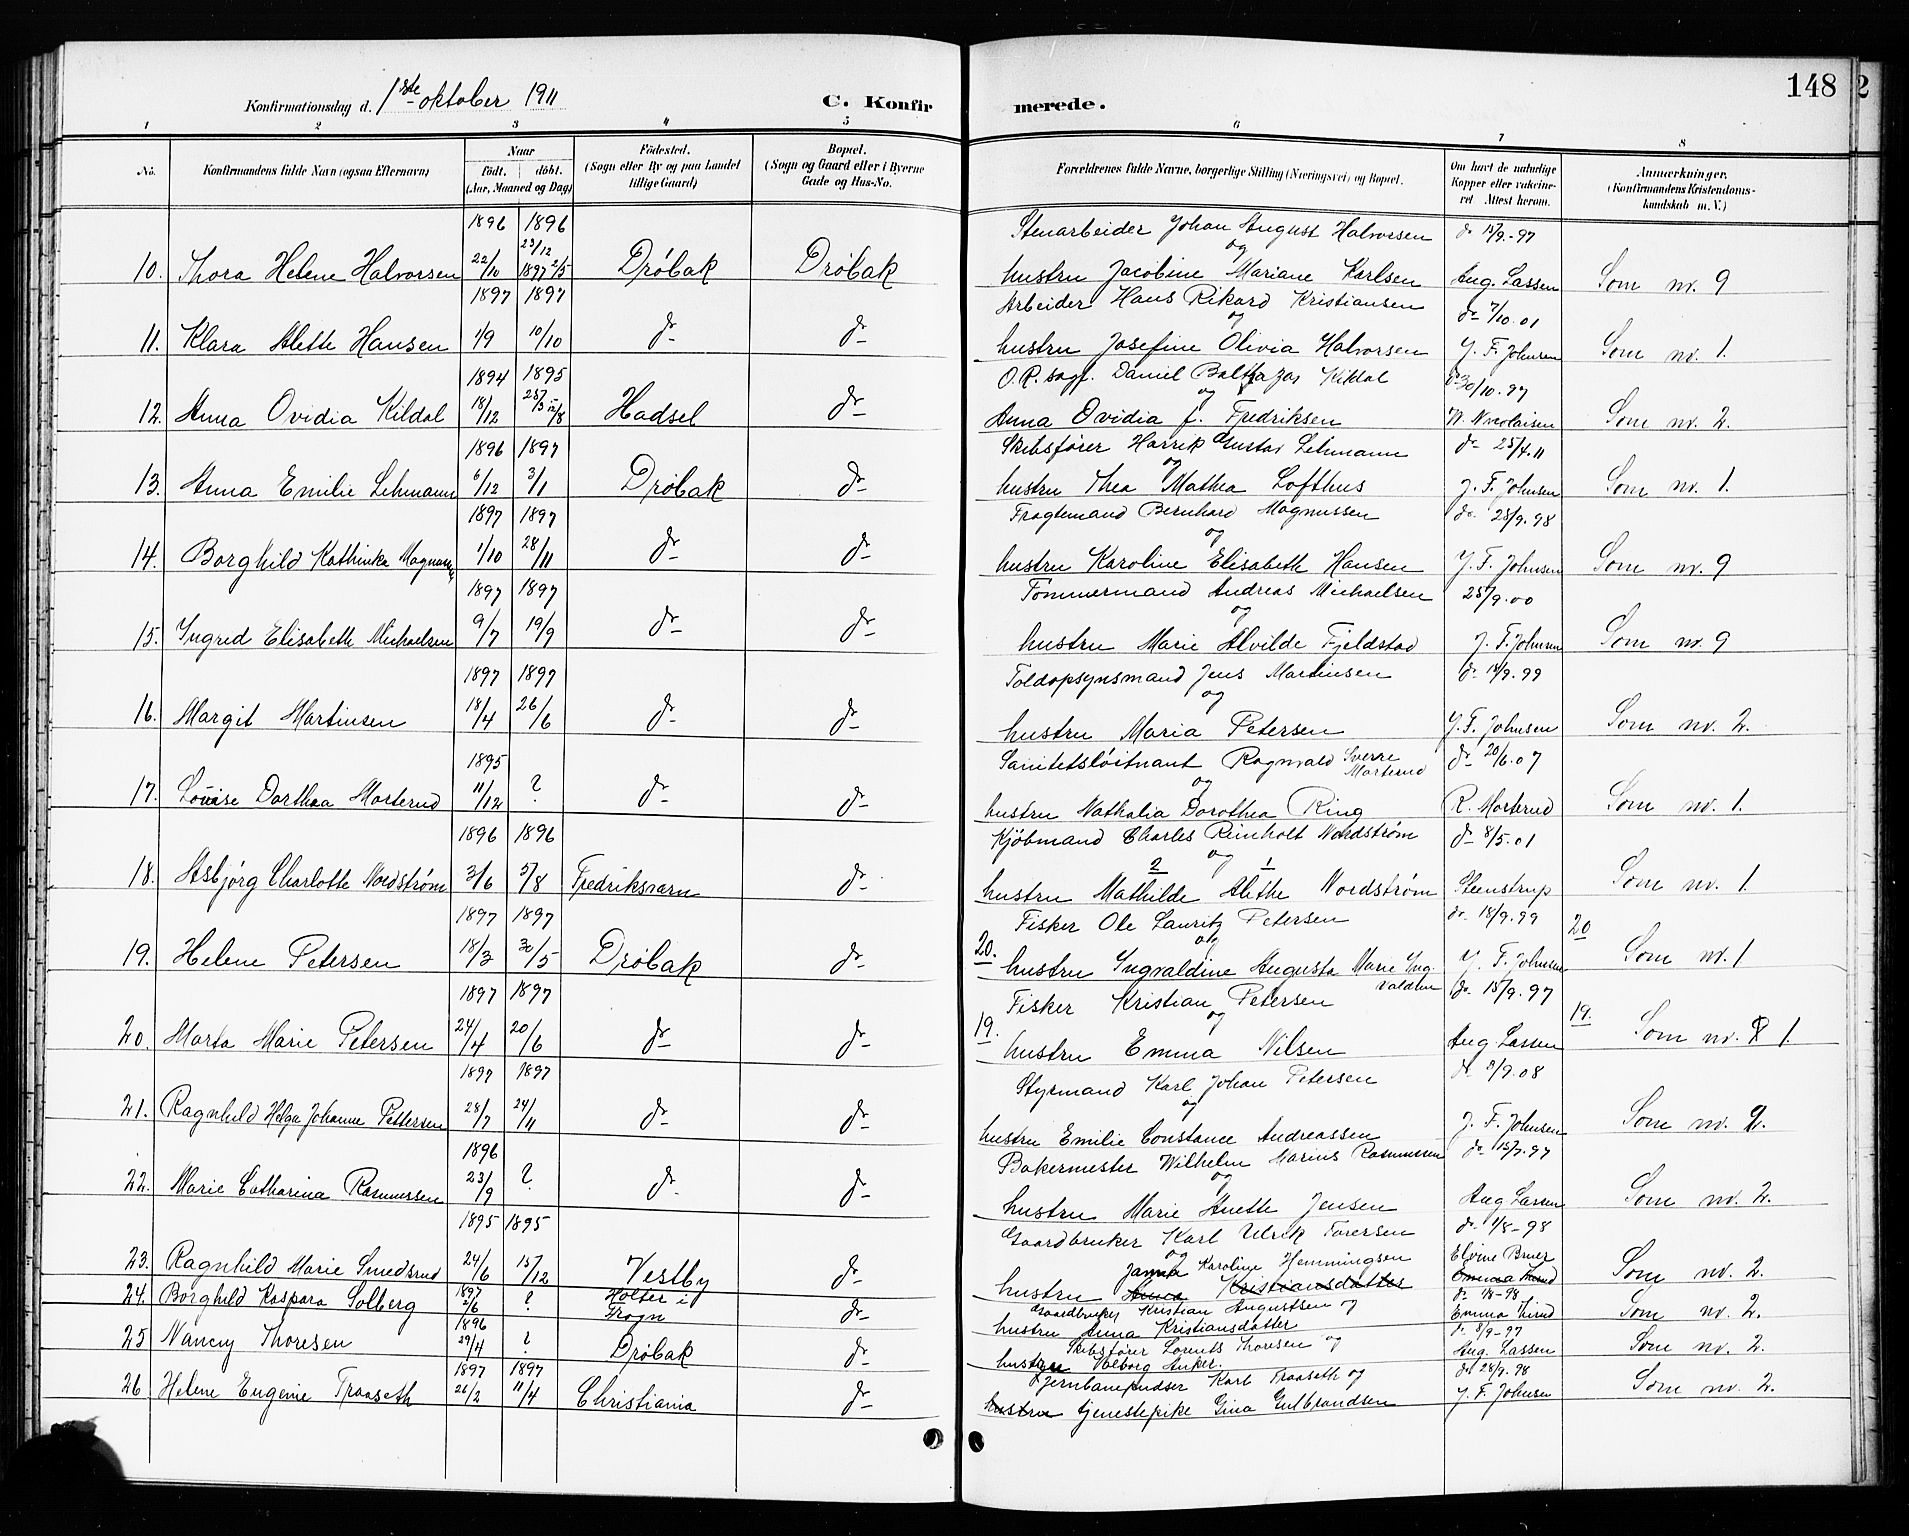 Konfirmationsdag d. 1ste oktober 1911 C. Konfirmerede. 148
1 2 3 4 5 6 7 8
No. Konfirmandens fulde Navn (ogsaa Efternavn) Naar Født. døbt. (Aar, Maaned og Dag) Fødested. (Sogn eller By og paa Landet tillige Gaard) Bopæl. (Sogn og Gaard eller i Byerne Gade og Hus-No. Forældrenes fulde Navne, borgerlige Stilling (Næringsvei) og Bopæl. Om havt de naturlige Kopper eller vakcineret Attest herom. Anmærkninger. (Konfirmandens Kristendomskundskab m. V.)
1896 1896 Stenarbeider Johan August Halvorsen do 15/9-97
10. Thora Helene Halvorsen 22/10 23/12 1897 2/5 Drøbak Drøbak og hustru Jacobine Mariane Karlsen Aug. Lassen Som nr. 9
1897 1897 Arbeider Hans Rikard Kristiansen do 7/10.01
11. Klara Alette Hansen 1/9 10/10 do do og hustru Josefine Olivia Halvorsen J. F. Johnsen Som nr. 1.
1894 1895 O.R. sagf. Daniel Balthazar Kildal do 30/10.97
12. Anna Ovidia Kildal 18/12 Hadsel do og Anna Ovidia f. Fredriksen N. Nicolaisen Som nr. 2.
1896 1897 Skibsfører Henrik Gustav Lehmann do 25/4.11
13. Anna Emilie Lehmann 6/12 3/1 Drøbak do og hustru Thea Mathea Lofthus J. F. Johnsen Som nr. 1.
1897 1897 Fragtemand Bernhard Magnussen do 28/9.98
14. Borghild Kathinka Magnussen 1/10 28/11 do do og hustru Karoline Elisabeth Hansen J. F. Johnsen Som nr. 9
1897 1897 Tømmermand Andreas Michaelsen 25/9.00
15. Ingrid Elisabeth Michaelsen 9/7 19/9 do do og hustru Marie Alvilde Fjeldstad J. F. Johnsen Som nr. 9
1897 1897 Toldopsynsmand Jens Martinsen do 14/9.99
16. Margit Martinsen 18/4 26/6 do do og hustru Maria Petersen J. F. Johnsen Som nr. 2.
1895 Sanitetsløitnant Ragnvald Sverre Morterud do 20/6.07
17. Louise Dorthea Morterud 11/12 ? do do og hustru Nathalia Dorothea Ring R. Morterud Som nr. 1.
1896 1896 Kjøbmand Charles Reinholt Nordstrøm do 8/5.01
18. Asbjørg Charlotte Nordstrøm 3/6 5/8 Fredriksværn do og hustru 2 Mathilde 1 Alethe Nordstrøm Steenstrup Som nr. 1
1897 1897 Fisker Ole Lauritz Petersen do 18/9.99 20
19. Helene Petersen 18/3 30/5 Drøbak do 20. og hustru Ingvaldine Augusta Marie Ingvaldsen J. F. Johnsen Som nr. 1
1897 1897 Fisker Kristian Petersen do 15/9.97
20. Marta Marie Petersen 24/4 20/6 do do 19. og hustru Emma Nilsen Aug Lassen 19. Som nr. 1.
1897 1897 Styrmand Karl Johan Petersen
21. Ragnhild Helga Johanne Pettersen 28/7 24/11 do do og hustru Emilie Constance Andreassen J. F. Johnsen Som nr. 2.
1896 Bakermester Wilhelm Marius Rasmussen
22. Marie Catharina Rasmussen 23/9 ? do do og hustru Marie Anette Jensen Aug Lassen Som nr. 2.
1895 1895 Gaardbruker Karl Ulrik Toresen do 1/8-98
23. Ragnhild Marie Smedsrud 24/6 15/12 Vestby do og hustru Anna Kristiansdatter Janna Karoline Hemmingsen Emma Lund Som nr. 2.
24. Borghild Kaspara Solberg 1897 2/6 ? Holter i Frogn do Gaardbruker Kristian Augustsen og hustru Anna Kristiansdatter do 1/8-98 Emma Lund Som nr. 2.
25 Nancy Thoresen 1896 29/4 ? Drøbak do Skibsfører Lorents Thoresen og hustru Valborg Anker. do 8/9-97 Aug. Lassen Som nr. 2.
26 Helene Eugenie Traaseth 1897 26/2 1897 11/4 Christiania do Karl Traaseth og hustru tjenestepike Gina Gulbrandsen do 28/9.98 J. F. Johnsen Som nr. 2.